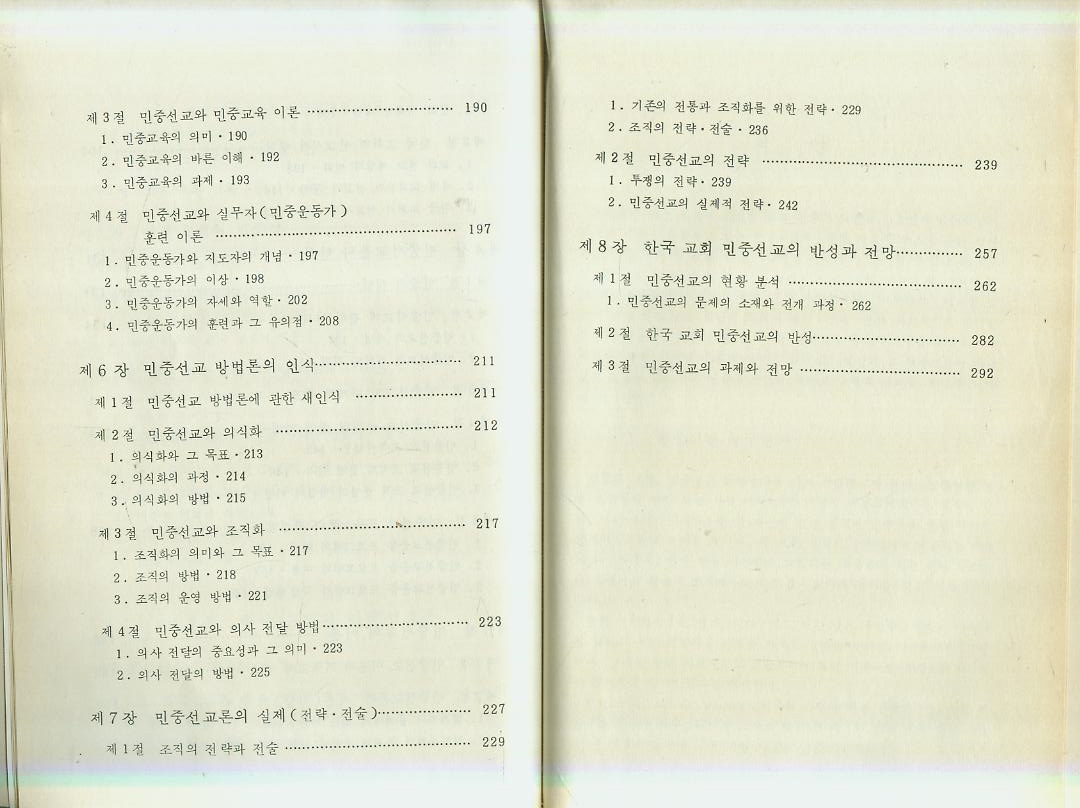 제3절 민중선교와 민중교육 이론 ………………………… 190
1. 민중교육의 의미·190
2. 민중교육의 바른 이해·192
3. 민중교육의 과제·193
제4절 민중선교와 실무자(민중운동가)
훈련 이론 ………………………………………… 197
1. 민중운동가와 지도자의 개념·197
2. 민중운동가의 이상·198
3. 민중운동가의 자세와 역할·202
4. 민중운동가의 훈련과 그 유의점·208
제6장 민중선교 방법론의 인식………………………… 211
제1절 민중선교 방법론에 관한 새인식 ………………… 211
제2절 민중선교와 의식화 ……………………………… 212
1. 의식화와 그 목표·213
2. 의식화의 과정·214
3. 의식화의 방법·215
제3절 민중선교와 조직화 ……………………………… 217
1. 조직화의 의미와 그 목표·217
2. 조직의 방법·218
3. 조직의 운영 방법·221
제4절 민중선교와 의사 전달 방법……………………… 223
1. 의사 전달의 중요성과 그 의미·223
2. 의사 전달의 방법·225
제7장 민중선교론의 실제(전략·전술)……………… 227
제1절 조직의 전략과 전술 ……………………………… 229
1. 기존의 전통과 조직화를 위한 전략·229
2. 조직의 전략·전술·236
제2절 민중선교의 전략 ………………………………… 239
1. 투쟁의 전략·239
2. 민중선교의 실제적 전략·242
제8장 한국 교회 민중선교의 반성과 전망……………… 257
제1절 민중선교의 현황 분석 …………………………… 262
1. 민중선교의 문제의 소재와 전개 과정·262
제2절 한국 교회 민중선교의 반성……………………… 282
제3절 민중선교의 과제와 전망 ………………………… 292